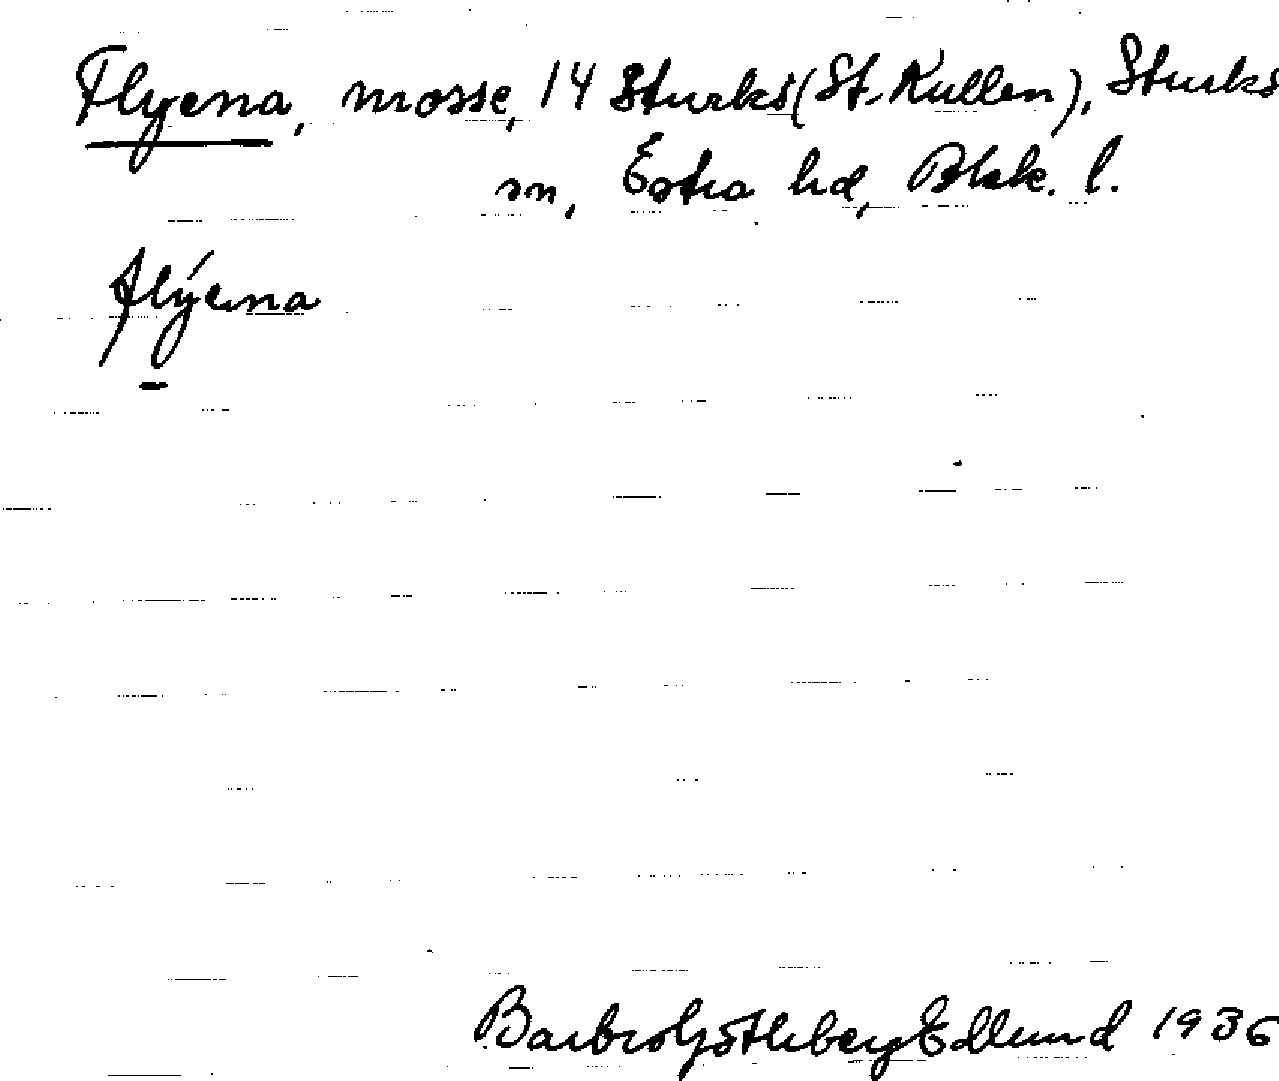 Flyerna, mosse, 14 Sturkö (St. Kullen), Sturkö
sn, Östra hd, Blek. l.
flýerna
Barbro Götheberg Edlund 1936